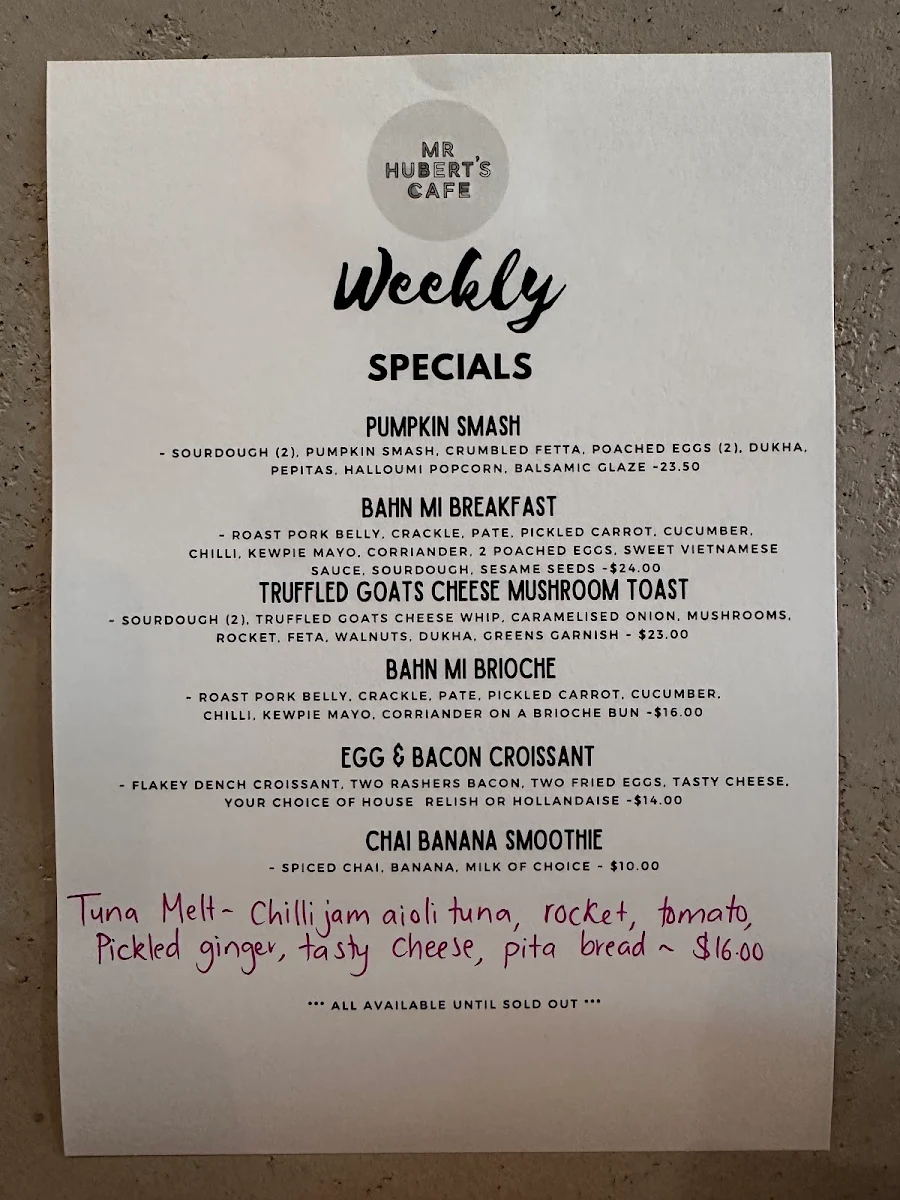 MR
HUBERT'S
CAFE
Weekly
SPECIALS
PUMPKIN SMASH
- SOURDOUGH (2), PUMPKIN SMASH, CRUMBLED FETTA, POACHED EGGS (2), DUKHA,
PEPITAS, HALLOUMI POPCORN, BALSAMIC GLAZE -23.50
BAHN MI BREAKFAST
- ROAST PORK BELLY, CRACKLE, PATE, PICKLED CARROT, CUCUMBER,
CHILLI, KEWPIE MAYO, CORRIANDER, 2 POACHED EGGS, SWEET VIETNAMESE
SAUCE, SOURDOUGH, SESAME SEEDS -$24.00
TRUFFLED GOATS CHEESE MUSHROOM TOAST
- SOURDOUGH (2), TRUFFLED GOATS CHEESE WHIP, CARAMELISED ONION, MUSHROOMS,
ROCKET, FETA, WALNUTS, DUKHA, GREENS GARNISH - $23.00
BAHN MI BRIOCHE
- ROAST PORK BELLY, CRACKLE, PATE, PICKLED CARROT, CUCUMBER,
CHILLI, KEWPIE MAYO, CORRIANDER ON A BRIOCHE BUN -$16.00
EGG & BACON CROISSANT
- FLAKEY DENCH CROISSANT, TWO RASHERS BACON, TWO FRIED EGGS, TASTY CHEESE,
YOUR CHOICE OF HOUSE RELISH OR HOLLANDAISE -$14.00
CHAI BANANA SMOOTHIE
- SPICED CHAI, BANANA, MILK OF CHOICE - $10.00
Tuna Melt ~ Chilli jam aioli tuna, rocket, tomato,
Pickled ginger, tasty cheese, pita bread ~ $16.00
*** ALL AVAILABLE UNTIL SOLD OUT ***